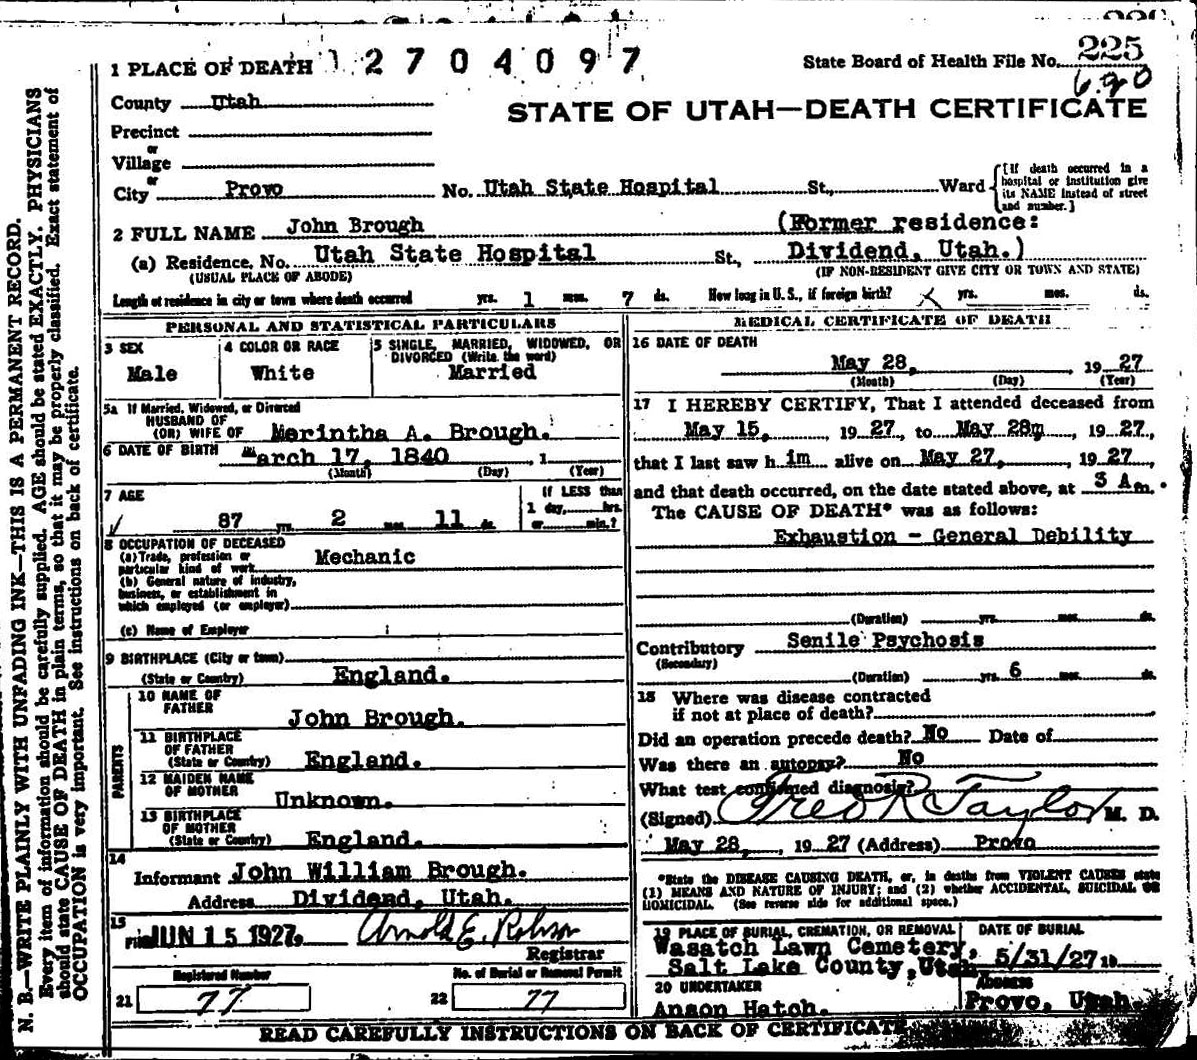 1 PLACE OF DEATH 12704097
State Board of Health File No. 225
County Utah
STATE OF UTAH—DEATH CERTIFICATE
Precinct
or
Village
or
City Provo No. Utah State Hospital St., Ward
[If death occurred in a
hospital or institution give
its NAME instead of street
and number.]
2 FULL NAME John Brough (Former residence:
(a) Residence, No. Utah State Hospital St., Dividend, Utah.)
(USUAL PLACE OF ABODE) (IF NON-RESIDENT GIVE CITY OR TOWN AND STATE)
Length of residence in city or town where death occurred yrs. 1 mos. 7 ds. How long in U. S., if foreign birth? yrs. mos. ds.
PERSONAL AND STATISTICAL PARTICULARS
3 SEX
Male
4 COLOR OR RACE
White
5 SINGLE, MARRIED, WIDOWED, OR
DIVORCED (Write the word)
Married
5a If Married, Widowed, or Divorced
HUSBAND OF
(OR) WIFE OF Merintha A. Brough.
6 DATE OF BIRTH March 17, 1840 , 1
(Month) (Day) (Year)
7 AGE
87 yrs. 2 mos. 11 ds.
If LESS than
1 day, hrs.
or min.?
8 OCCUPATION OF DECEASED
(a) Trade, profession or
particular kind of work Mechanic
(b) General nature of industry,
business, or establishment in
which employed (or employer)
(c) Name of Employer
9 BIRTHPLACE (City or town)
(State or Country) England.
PARENTS
10 NAME OF
FATHER
John Brough.
11 BIRTHPLACE
OF FATHER
(State or Country) England.
12 MAIDEN NAME
OF MOTHER
Unknown.
13 BIRTHPLACE
OF MOTHER
(State or Country) England.
14
Informant John William Brough.
Address Dividend, Utah.
15
Filed JUN 15 1927 Arnold E. Robison
Registrar
Registered Number
21 77
No. of Burial or Removal Permit
22 77
MEDICAL CERTIFICATE OF DEATH
16 DATE OF DEATH
May 28, , 19 27
(Month) (Day) (Year)
17 I HEREBY CERTIFY, That I attended deceased from
May 15, , 19 27, to May 28m , 19 27,
that I last saw h im alive on May 27, , 19 27,
and that death occurred, on the date stated above, at 3 A m.
The CAUSE OF DEATH* was as follows:
Exhaustion - General Debility
(Duration) yrs. mos. ds.
Contributory Senile Psychosis
(Secondary)
(Duration) yrs. 6 mos. ds.
18 Where was disease contracted
if not at place of death?
Did an operation precede death? No Date of
Was there an autopsy? No
What test confirmed diagnosis?
(Signed) Fred R Taylor M. D.
May 28, , 19 27 (Address) Provo
*State the DISEASE CAUSING DEATH, or, in deaths from VIOLENT CAUSES state
(1) MEANS AND NATURE OF INJURY; and (2) whether ACCIDENTAL, SUICIDAL OR
HOMICIDAL. (See reverse side for additional space.)
19 PLACE OF BURIAL, CREMATION, OR REMOVAL
Wasatch Lawn Cemetery,
Salt Lake County, Utah
DATE OF BURIAL
5/31/27 19
20 UNDERTAKER
Anson Hatch.
ADDRESS
Provo, Utah.
READ CAREFULLY INSTRUCTIONS ON BACK OF CERTIFICATE
N. B.—WRITE PLAINLY WITH UNFADING INK—THIS IS A PERMANENT RECORD.
Every item of information should be carefully supplied. AGE should be stated EXACTLY. PHYSICIANS
should state CAUSE OF DEATH in plain terms, so that it may be properly classified. Exact statement of
OCCUPATION is very important. See instructions on back of certificate.